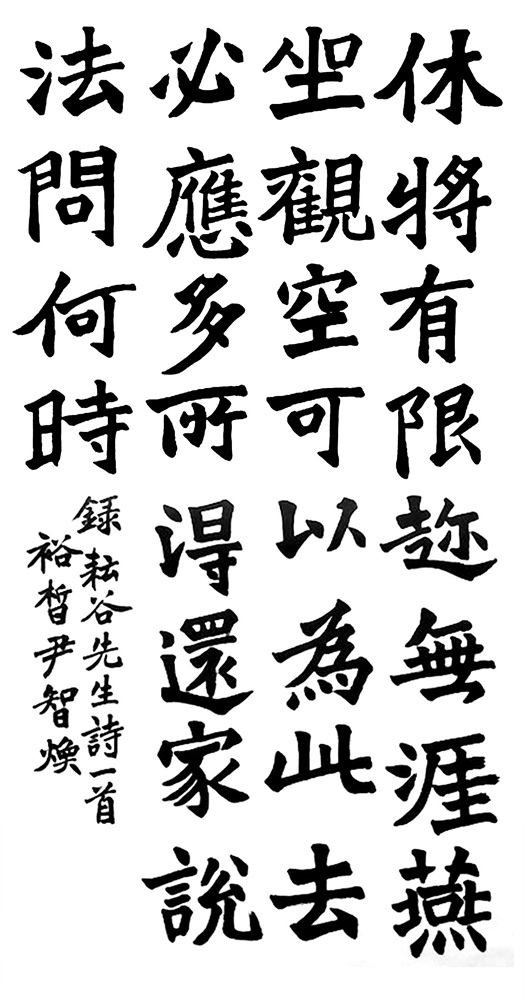 休將有限趂無涯燕
坐觀空可以為此去
必應多所淂還家說
法問何時
録耘谷先生詩一首
裕晳尹智煥